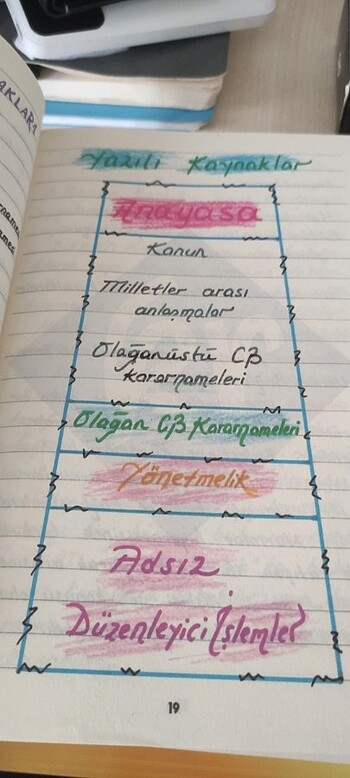 AKLARI
Yazılı Kaynaklar
Anayasa
Kanun
Milletler arası
anlaşmalar
Olağanüstü CB
kararnameleri
Olağan CB Kararnameleri
Yönetmelik
Adsız
Düzenleyici İşlemler
19